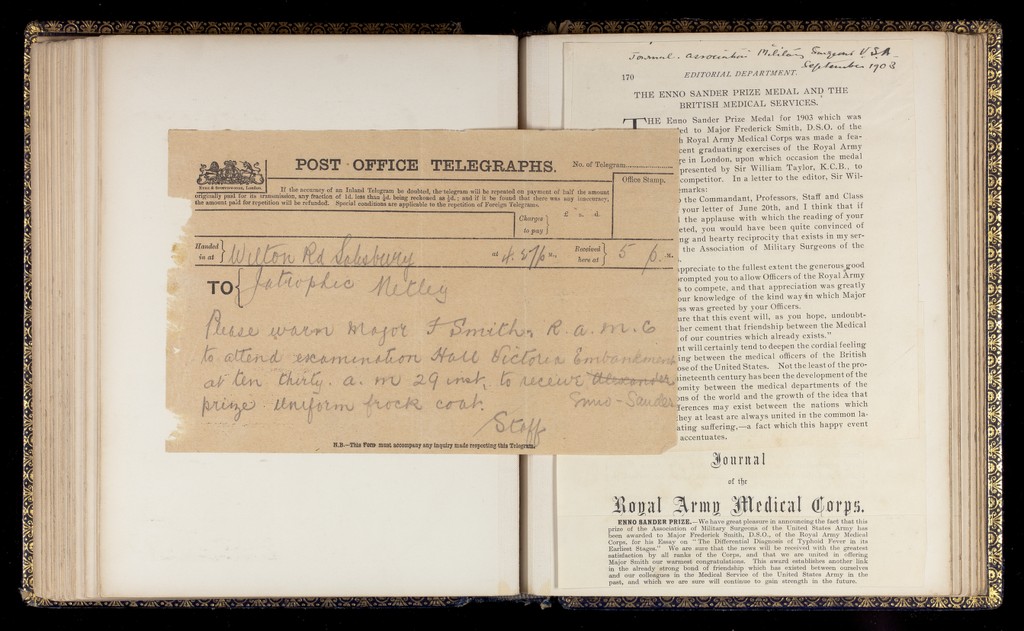 Journal - Association Military Surgeons U.S.A.
September 1903
170 EDITORIAL DEPARTMENT.
THE ENNO SANDER PRIZE MEDAL AND THE
BRITISH MEDICAL SERVICES.
THE Enno Sander Prize Medal for 1903 which was
ed to Major Frederick Smith, D.S.O. of the
h Royal Army Medical Corps was made a fea-
cent graduating exercises of the Royal Army
re in London, upon which occasion the medal
presented by Sir William Taylor, K.C.B., to
competitor. In a letter to the editor, Sir Wil-
emarks:
the Commandant, Professors, Staff and Class
your letter of June 20th, and I think that if
the applause with which the reading of your
eted, you would have been quite convinced of
ng and hearty reciprocity that exists in my ser-
the Association of Military Surgeons of the
ppreciate to the fullest extent the generous good
rompted you to allow Officers of the Royal Army
s to compete, and that appreciation was greatly
our knowledge of the kind way in which Major
ss was greeted by your Officers.
ure that this event will, as you hope, undoubt-
her cement that friendship between the Medical
of our countries which already exists."
nt will certainly tend to deepen the cordial feeling
ing between the medical officers of the British
ose of the United States. Not the least of the pro-
nineteenth century has been the development of the
omity between the medical departments of the
ons of the world and the growth of the idea that
ferences may exist between the nations which
hey at least are always united in the common la-
ating suffering,—a fact which this happy event
accentuates.
Journal
of the
Royal Army Medical Corps.
ENNO SANDER PRIZE.—We have great pleasure in announcing the fact that this
prize of the Association of Military Surgeons of the United States Army has
been awarded to Major Frederick Smith, D.S.O., of the Royal Army Medical
Corps, for his Essay on "The Differential Diagnosis of Typhoid Fever in its
Earliest Stages." We are sure that the news will be received with the greatest
satisfaction by all ranks of the Corps, and that we are united in offering
Major Smith our warmest congratulations. This award establishes another link
in the already strong bond of friendship which has existed between ourselves
and our colleagues in the Medical Service of the United States Army in the
past, and which we are sure will continue to gain strength in the future.
POST OFFICE TELEGRAPHS.
No. of Telegram
Office Stamp.
If the accuracy of an Inland Telegram be doubted, the telegram will be repeated on payment of half the amount
originally paid for its transmission, any fraction of 1d. less than ½d. being reckoned as ½d.; and if it be found that there was any inaccuracy,
the amount paid for repetition will be refunded. Special conditions are applicable to the repetition of Foreign Telegrams.
Charges to pay £ s. d.
Handed in at Wilton Rd Salisbury at 4.27 p M., Received here at 5 p .M.
TO Iatrophic Netley
Please warn Major F Smith, R.a.m.C
to attend examination Hall Victoria Embankment
at ten thirty. a.m 29 inst, to receive Alexander
prize uniform frock coat. Enno-Sander
Staff
N.B.—This Form must accompany any inquiry made respecting this Telegram.